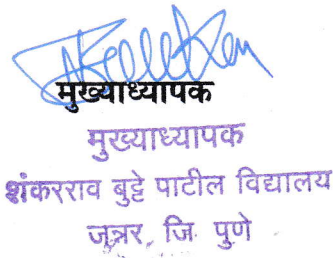 मुख्याध्यापक
मुख्याध्यापक
शंकरराव बुट्टे पाटील विद्यालय
जुन्नर, जि. पुणे